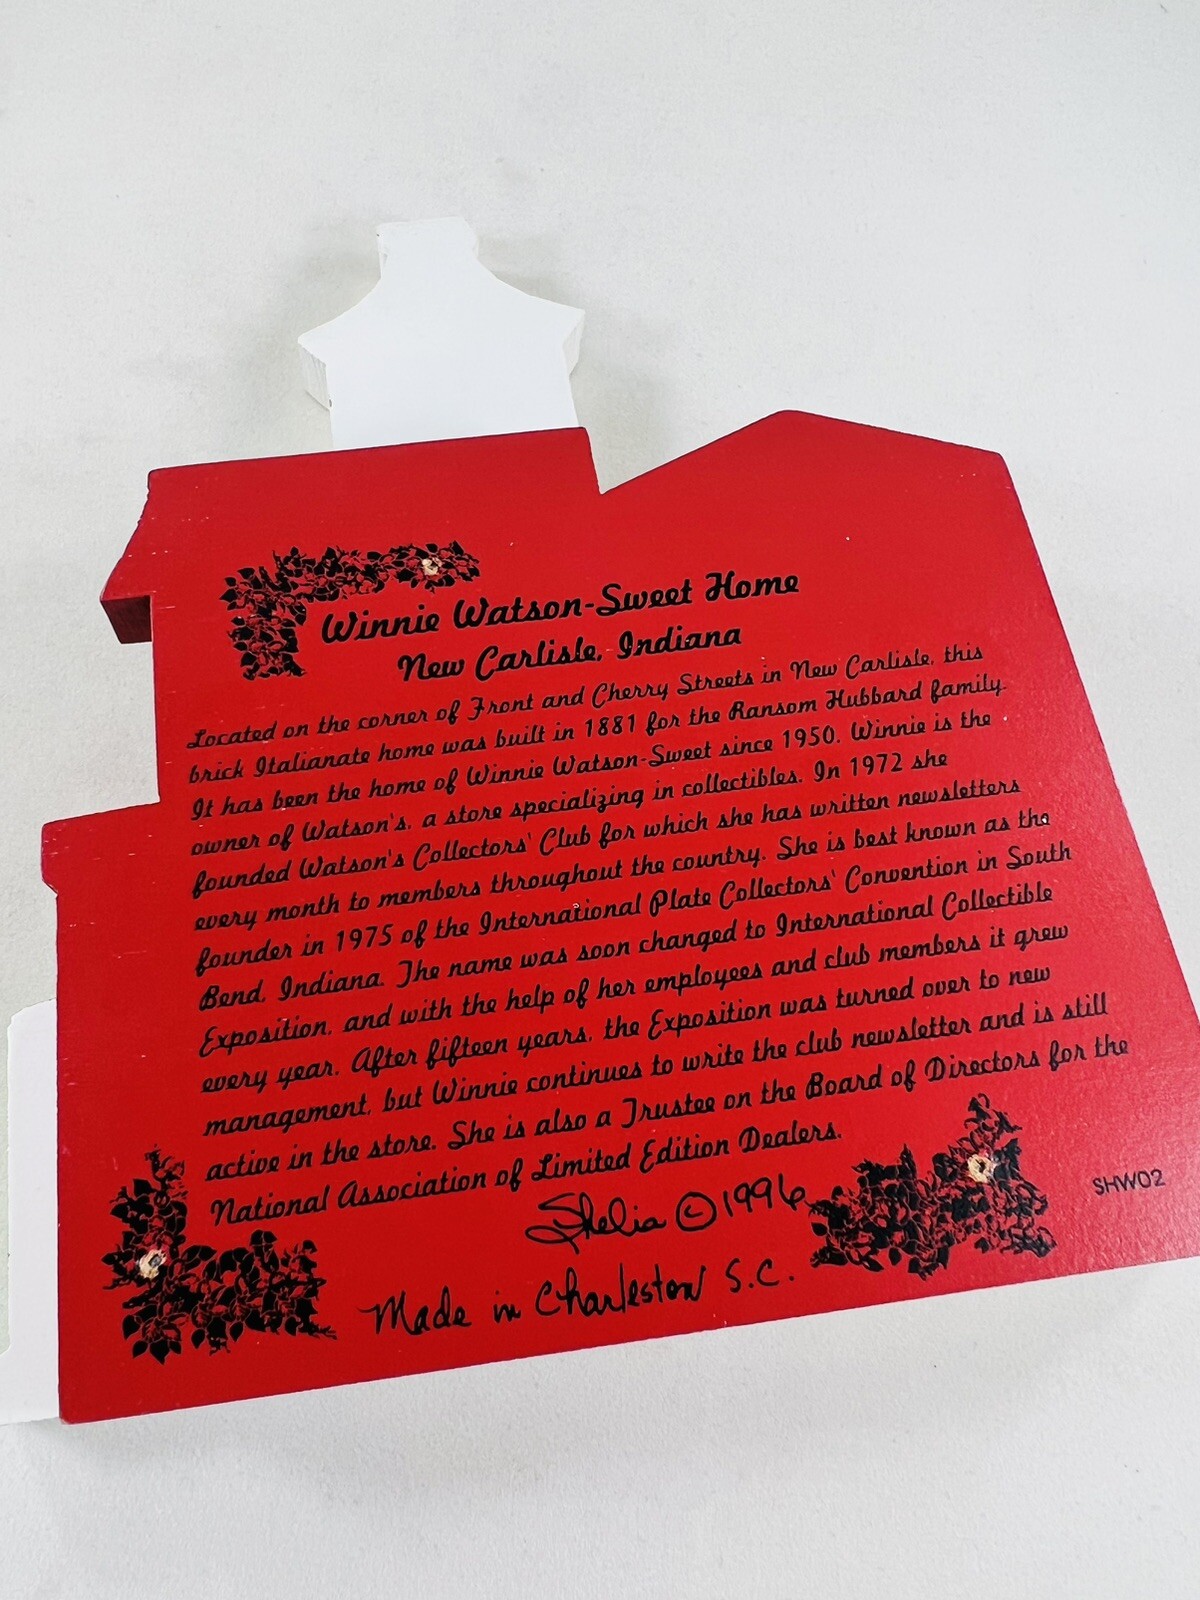 Winnie Watson-Sweet Home
New Carlisle, Indiana
Located on the corner of Front and Cherry Streets in New Carlisle, this
brick Italianate home was built in 1881 for the Ransom Hubbard family.
It has been the home of Winnie Watson-Sweet since 1950. Winnie is the
owner of Watson's, a store specializing in collectibles. In 1972 she
founded Watson's Collectors' Club for which she has written newsletters
every month to members throughout the country. She is best known as the
founder in 1975 of the International Plate Collectors' Convention in South
Bend, Indiana. The name was soon changed to International Collectible
Exposition, and with the help of her employees and club members it grew
every year. After fifteen years, the Exposition was turned over to new
management, but Winnie continues to write the club newsletter and is still
active in the store. She is also a Trustee on the Board of Directors for the
National Association of Limited Edition Dealers.
Shelia © 1996
SHW02
Made in Charleston S.C.